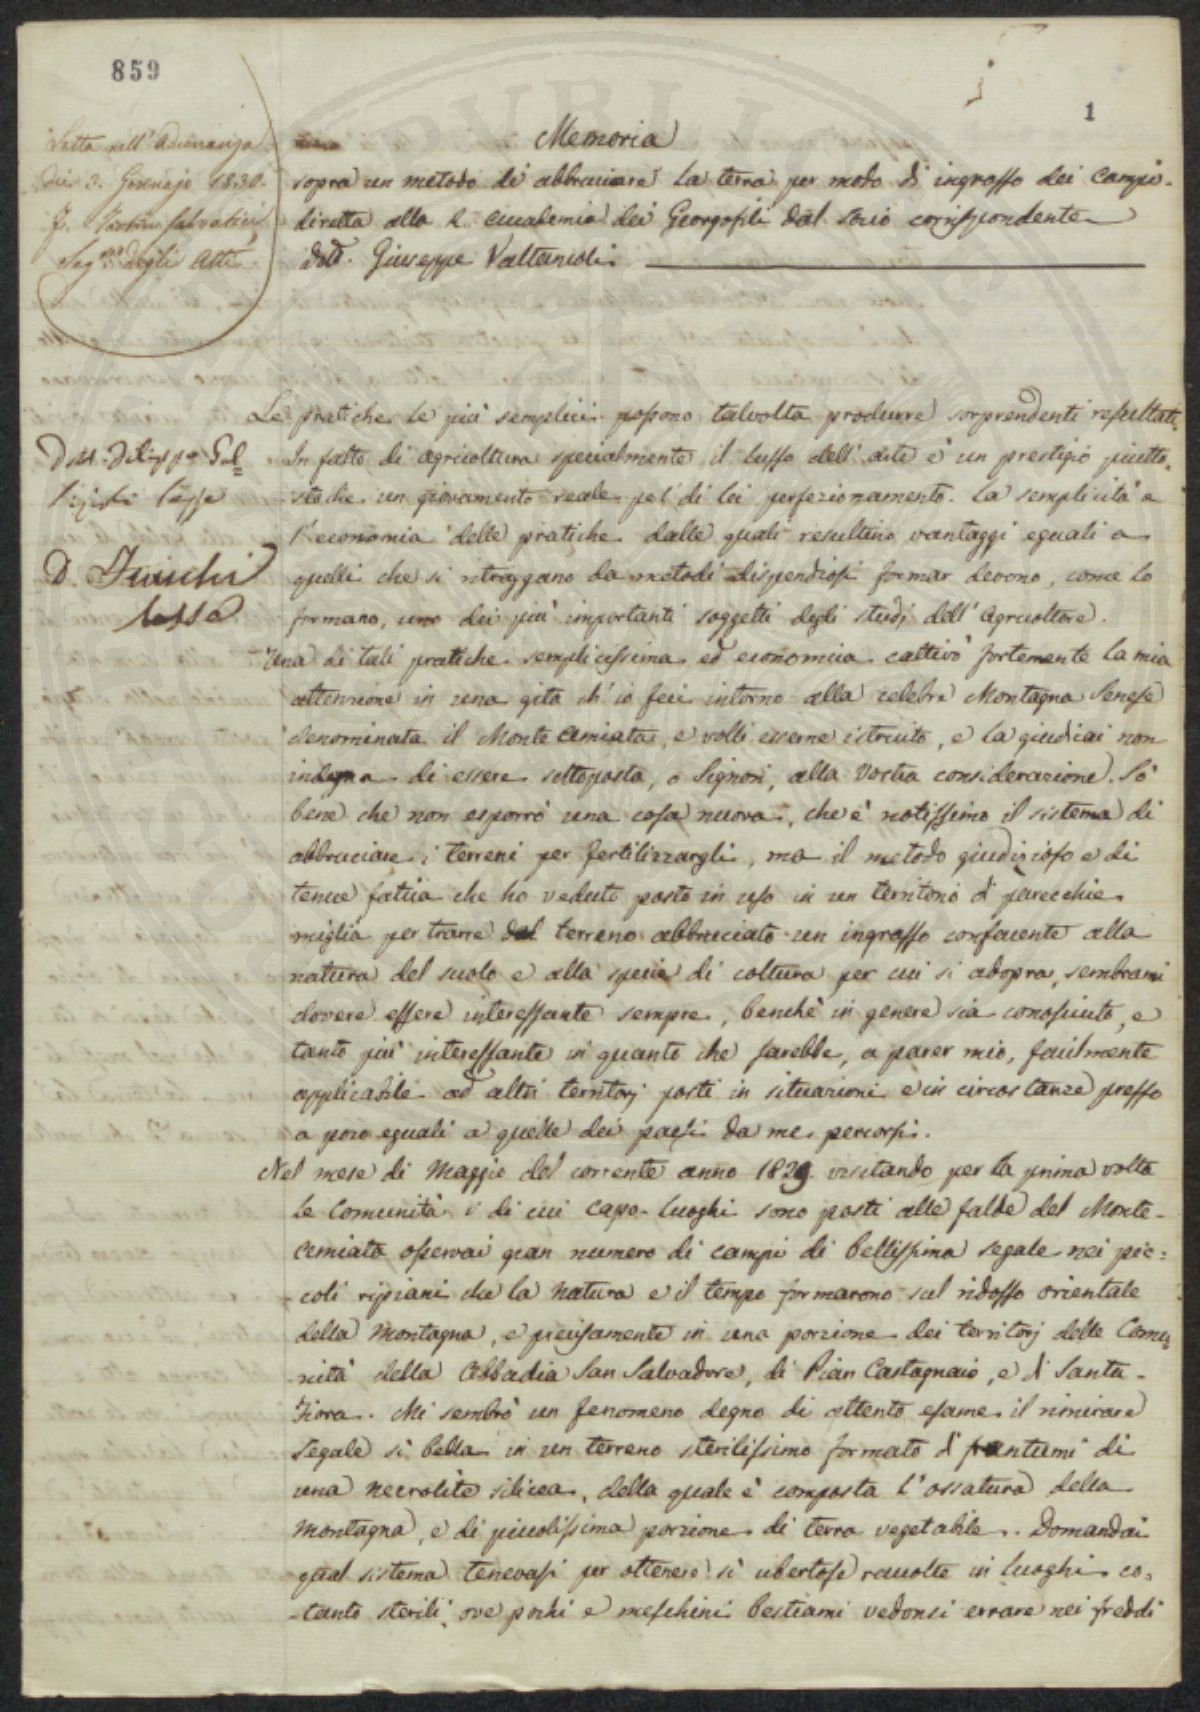 859
1
Letta nell'Adunanza
dei 3. Gennajo 1830.
Seg.rio degli Atti
Memoria
sopra un metodo di abbruciare la terra per modo di ingrasso dei campi
diretta alla R. Accademia dei Georgofili dal socio corrispondente
Dott. Giuseppe Valtancoli
Le pratiche le più semplici possono talvolta produrre sorprendenti resultati.
In fatto di agricoltura specialmente il lusso dell'arte è un prestigio piutto-
sto che un giovamento reale pel di lei perfezionamento. La semplicità e
l'economia delle pratiche dalle quali resultino vantaggi eguali a
quelli che si ritraggano da metodi dispendiosi formar devono, come lo
formano, uno dei più importanti soggetti degli studj dell'Agricoltore.
Una di tali pratiche semplicissima ed economica cattivò fortemente la mia
attenzione in una gita ch'io feci intorno alla celebre Montagna Senese
denominata il Monte Amiata, e volli esserne istruito, e la giudicai non
indegna di essere sottoposta, o Signori, alla Vostra considerazione. Sò
bene che non esporrò una cosa nuova, che è notissimo il sistema di
abbruciare i terreni per fertilizzargli, ma il metodo giudizioso e di
tenue fatica che ho veduto posto in uso in un territorio di parecchie
miglia per trarre dal terreno abbruciato un ingrasso confacente alla
natura del suolo e alla specie di coltura per cui si adopra, sembrami
dovere essere interessante sempre, benchè in genere sia conosciuto, e
tanto più interessante in quanto che sarebbe, a parer mio, facilmente
applicabile ad altri territorj posti in situazioni e in circostanze presso
a poco eguali a quelle dei paesi da me percorsi.
Nel mese di Maggio del corrente anno 1829. visitando per la prima volta
le Comunità i di cui capo-luoghi sono posti alle falde del Monte-
Amiata osservai gran numero di campi di bellissima segale nei pic-
coli ripiani che la natura e il tempo formarono sul ridosso orientale
della Montagna, e precisamente in una porzione dei territorj delle Comu-
nità della Abbadia San Salvadore, di Pian Castagnaio, e di Santa-
Fiora. Mi sembrò un fenomeno degno di attento esame il rimirare
segale sì bella in un terreno sterilissimo formato di frantumi di
una necrolite silicea, della quale è composta l'ossatura della
Montagna, e di piccolissima porzione di terra vegetabile. Domandai
qual sistema tenevasi per ottenere sì ubertose raccolte in luoghi co-
tanto sterili, ove pochi e meschini bestiami vedonsi errare nei freddi